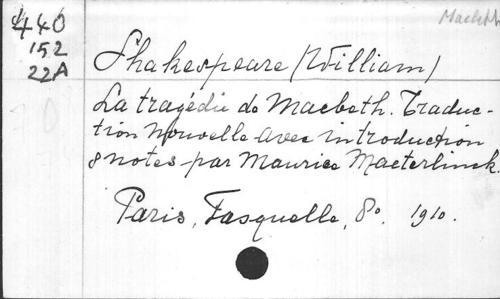 440
152
22A
Macbeth
Shakespeare (William)
La tragédie de Macbeth. Traduc-
tion Nouvelle avec introduction
& notes par Maurice Maeterlinck.
Paris, Fasquelle, 8o. 1910.